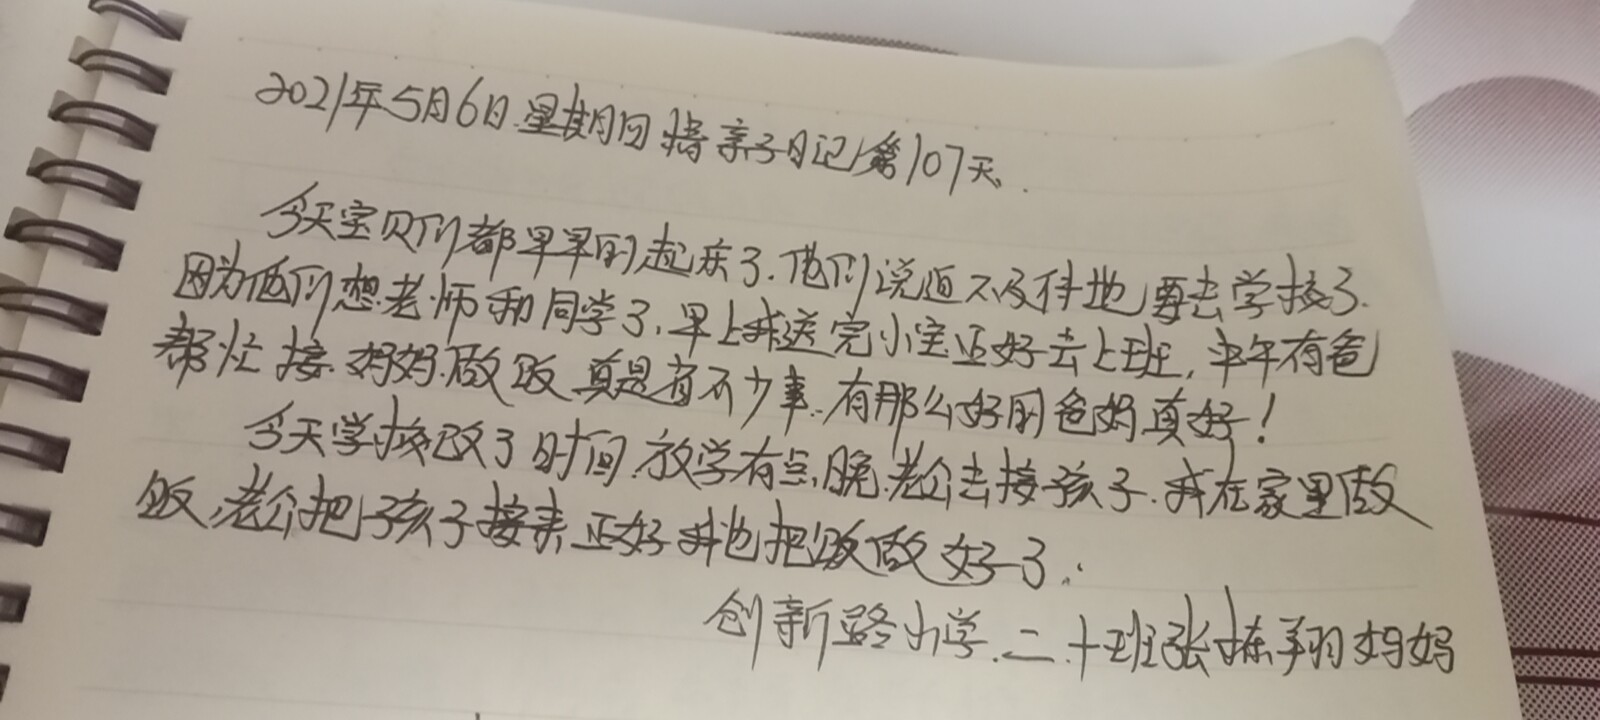 2021年5月6日星期四 晴 亲子日记第107天.
今天宝贝们都早早的起床了.他们说迫不及待地要去学校了.
因为他们想老师和同学了,早上我送完小宝正好去上班,中午有爸
帮忙接.妈妈.做饭真是省不少事.有那么好的爸妈真好!
今天学校改了时间.放学有点晚.老公去接孩子.我在家里做
饭,老公把孩子接来正好我也把饭做好了.
创新路小学.二.十班张栋翔妈妈